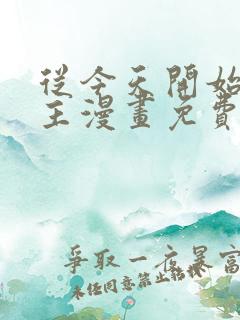 從今天開始
王漫畫免費
爭取一夜暴富
未经同意禁止转载